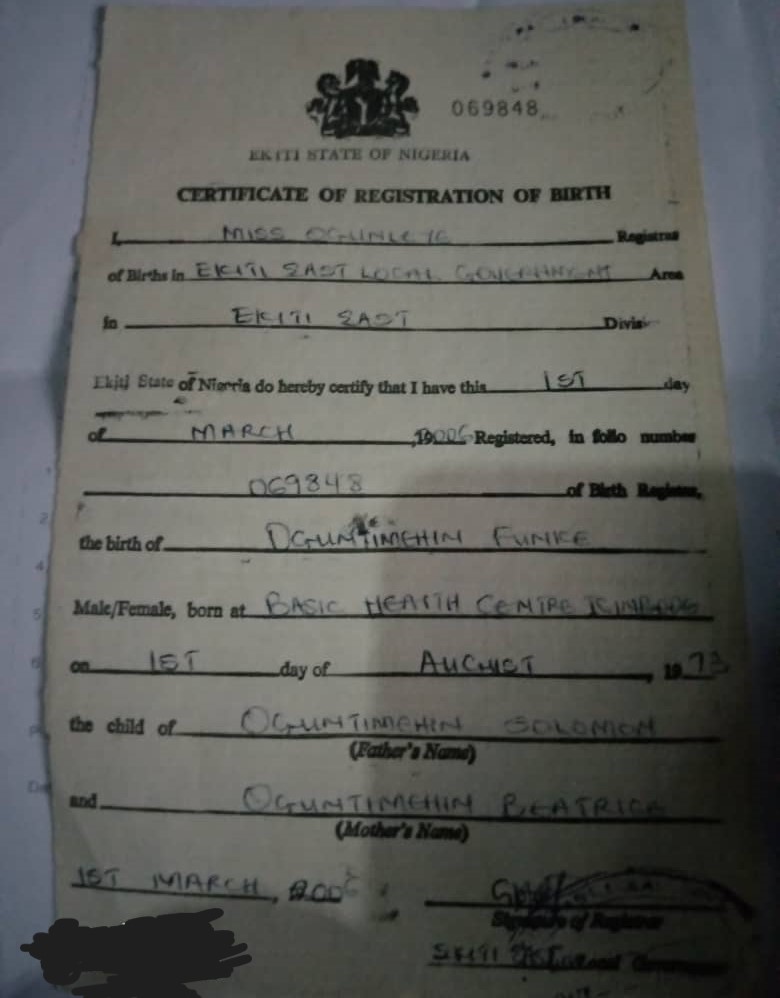 069848
EKITI STATE OF NIGERIA
CERTIFICATE OF REGISTRATION OF BIRTH
I, MISS OGUNLEYE Registrar
of Births in EKITI EAST LOCAL GOVERNMENT Area
in EKITI EAST Divis
Ekiti State of Nigeria do hereby certify that I have this 1ST day
of MARCH ,2006 Registered, in folio number
069848 of Birth Register,
the birth of OGUNTIMEHIN FUNKE
Male/Female, born at BASIC HEALTH CENTRE
on 1ST day of AUGUST , 1973
the child of OGUNTIMEHIN SOLOMON
(Father's Name)
and OGUNTIMEHIN BEATRICE
(Mother's Name)
1ST MARCH, 2006
Signature of Registrar
EKITI EAST Local Government